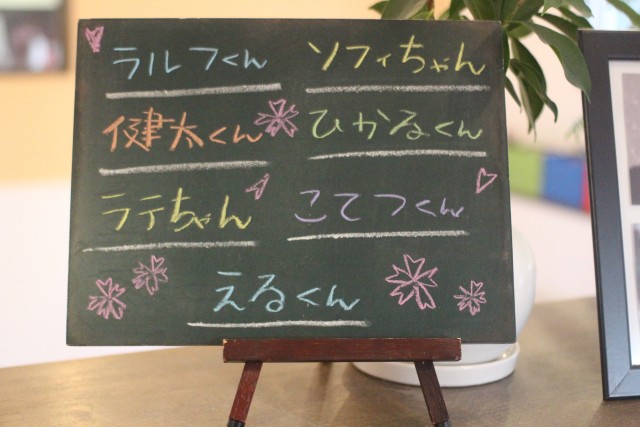 ラルフくん ソフィちゃん
健太くん ひかるくん
ラテちゃん こてつくん
えるくん